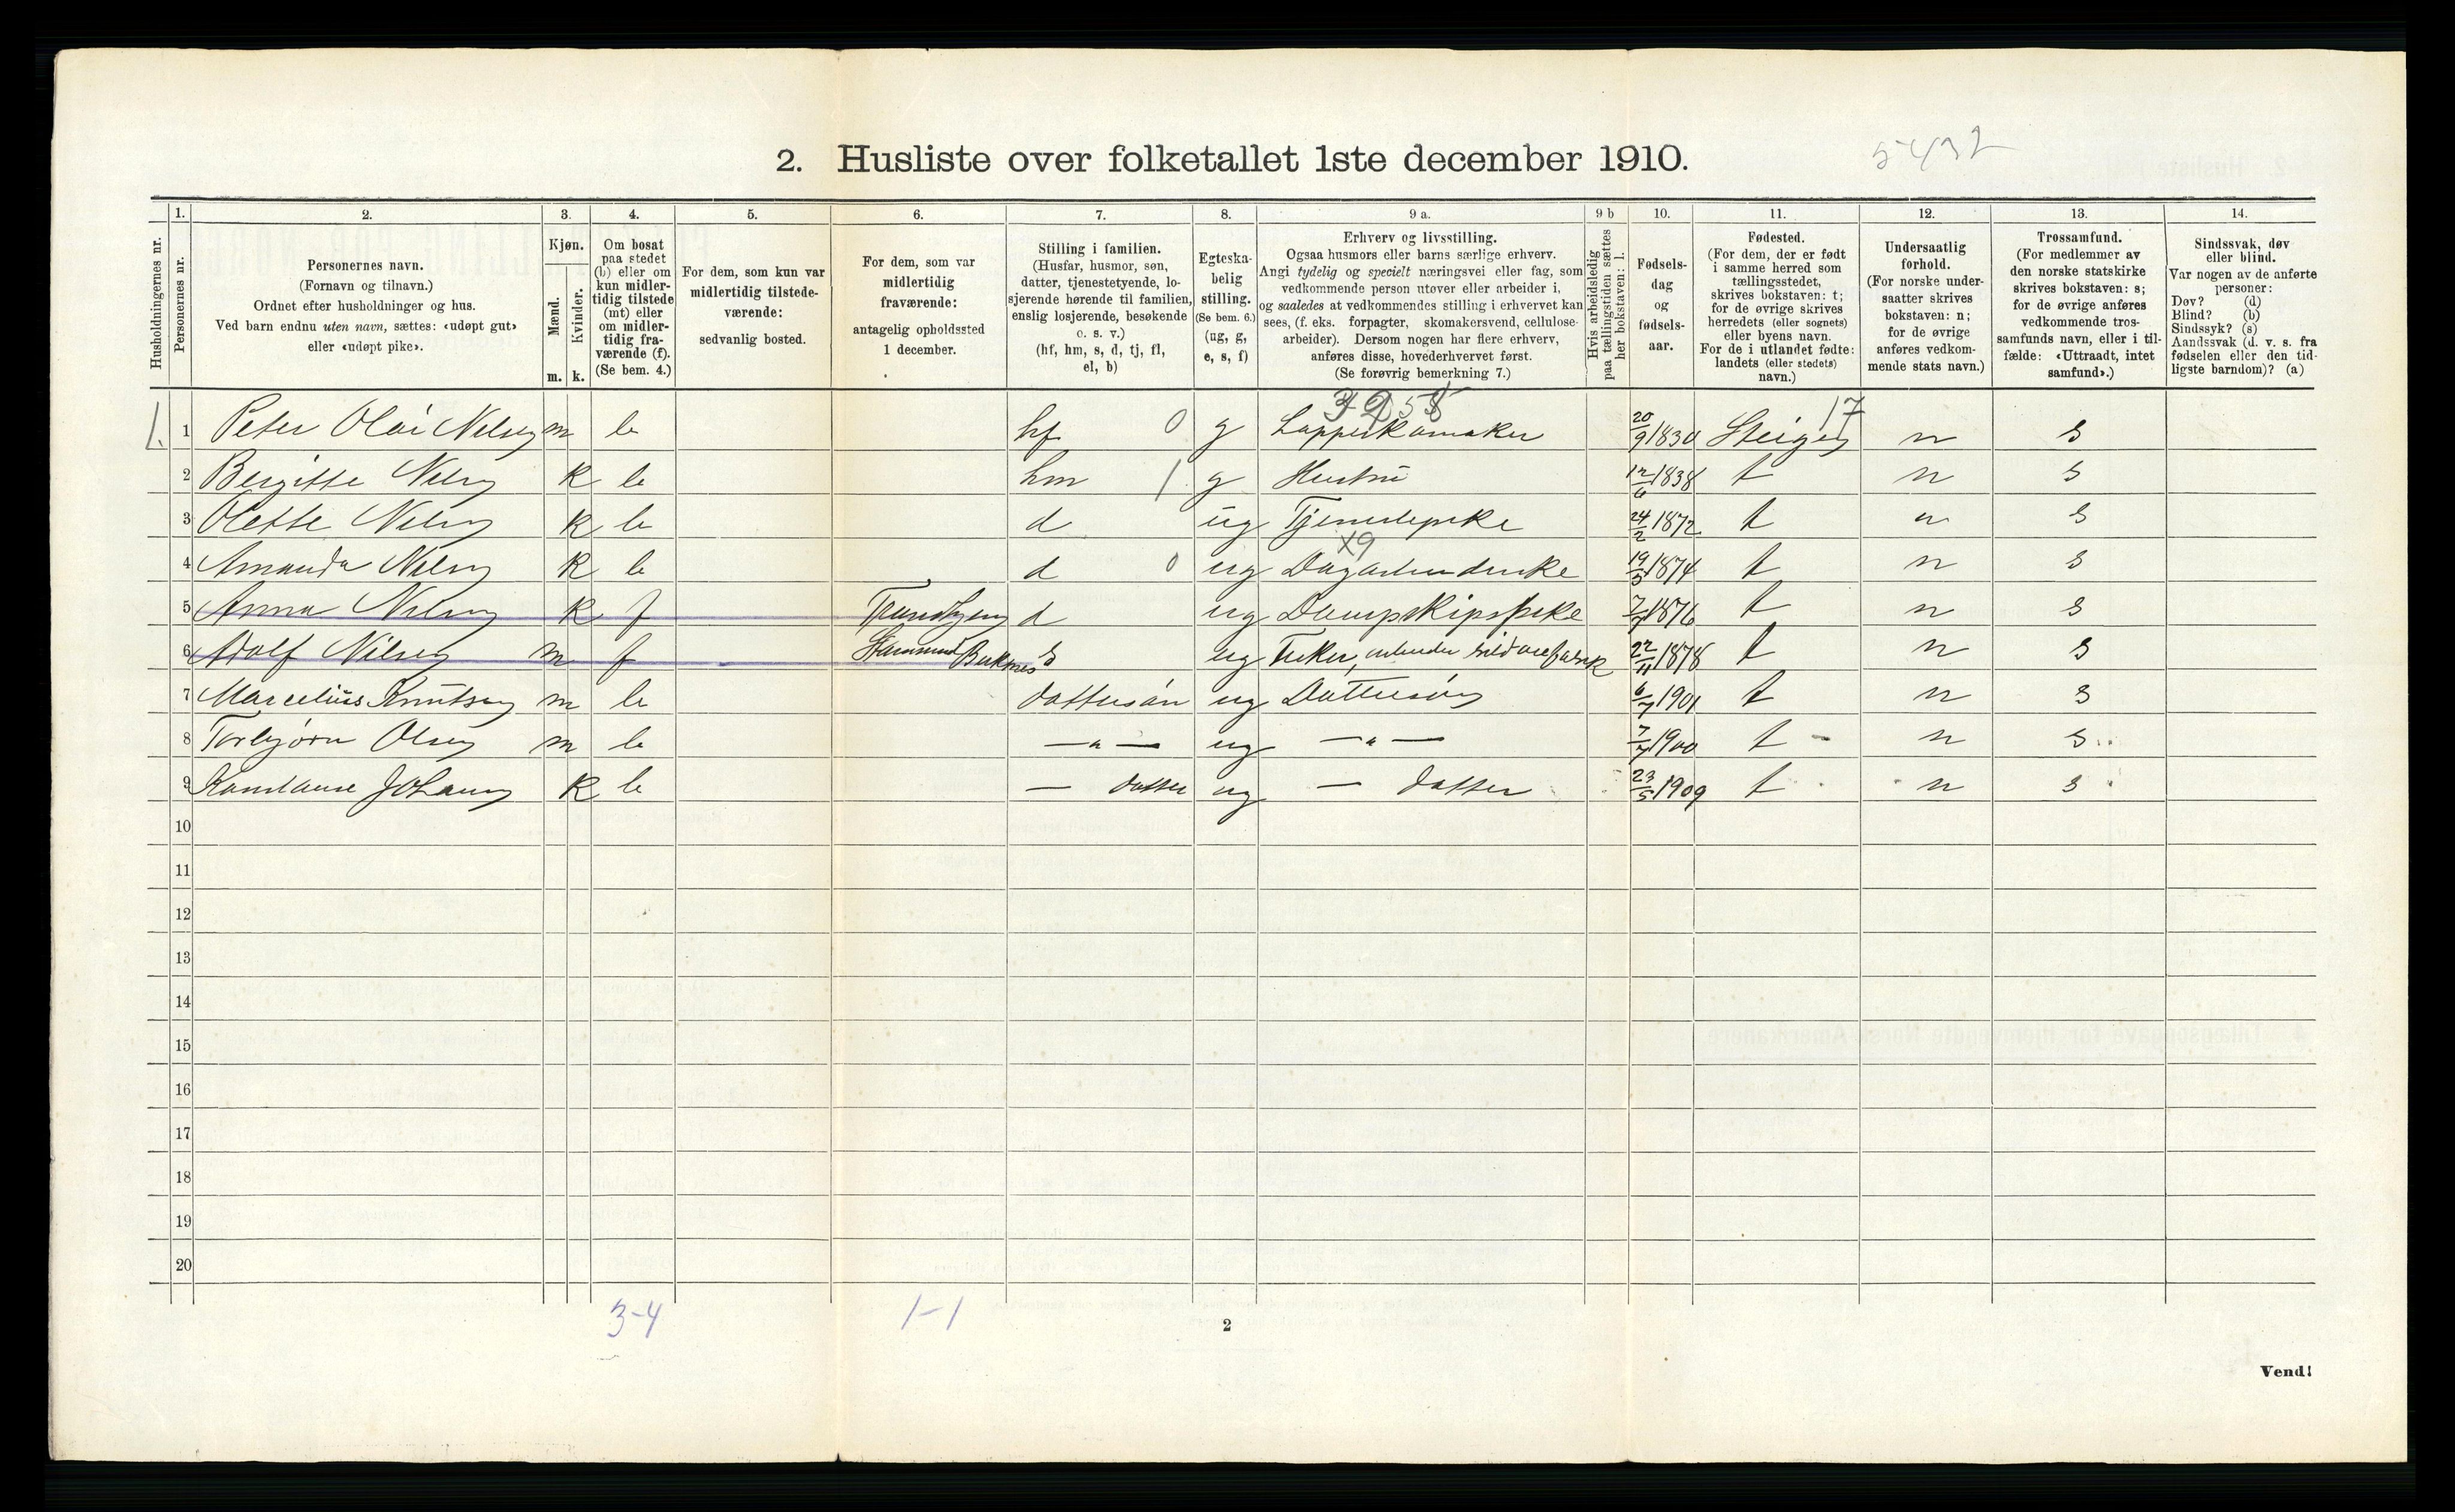 5432
2. Husliste over folketallet 1ste december 1910.
1. 2. 3. 4. 5. 6. 7. 8. 9 a. 9 b 10. 11. 12. 13. 14.
Husholdningernes nr.
Personernes nr.
Personernes navn.
(Fornavn og tilnavn.)
Ordnet efter husholdninger og hus.
Ved barn endnu uten navn, sættes: «udøpt gut»
eller «udøpt pike».
Kjøn.
Mænd.
Kvinder.
m. k.
Om bosat
paa stedet
(b) eller om
kun midler-
tidig tilstede
(mt) eller
om midler-
tidig fra-
værende (f).
(Se bem. 4.)
For dem, som kun var
midlertidig tilstede-
værende:
sedvanlig bosted.
For dem, som var
midlertidig
fraværende:
antagelig opholdssted
1 december.
Stilling i familien.
(Husfar, husmor, søn,
datter, tjenestetyende, lo-
sjerende hørende til familien,
enslig losjerende, besøkende
o. s. v.)
(hf, hm, s, d, tj, fl,
el, b)
Egteska-
belig
stilling.
(Se bem. 6.)
(ug, g,
e, s, f)
Erhverv og livsstilling.
Ogsaa husmors eller barns særlige erhverv.
Angi tydelig og specielt næringsvei eller fag, som
vedkommende person utøver eller arbeider i,
og saaledes at vedkommendes stilling i erhvervet kan
sees, (f. eks. forpagter, skomakersvend, cellulose-
arbeider). Dersom nogen har flere erhverv,
anføres disse, hovederhvervet først.
(Se forøvrig bemerkning 7.)
Hvis arbeidsledig
paa tællingstiden sættes
her bokstaven: l.
Fødsels-
dag
og
fødsels-
aar.
Fødested.
(For dem, der er født
i samme herred som
tællingsstedet,
skrives bokstaven: t;
for de øvrige skrives
herredets (eller sognets)
eller byens navn.
For de i utlandet fødte:
landets (eller stedets)
navn.)
Undersaatlig
forhold.
(For norske under-
saatter skrives
bokstaven: n;
for de øvrige
anføres vedkom-
mende stats navn.)
Trossamfund.
(For medlemmer av
den norske statskirke
skrives bokstaven: s;
for de øvrige anføres
vedkommende tros-
samfunds navn, eller i til-
fælde: «Uttraadt, intet
samfund».)
Sindssvak, døv
eller blind.
Var nogen av de anførte
personer:
Døv? (d)
Blind? (b)
Sindssyk? (s)
Aandssvak (d. v. s. fra
fødselen eller den tid-
ligste barndom)? (a)
17
1. 1 Peter Olai Nelsen m b hf 0 g Lappeskomaker 20/9 1830 Steigen n s
2 Bergitte Nelsen k b hm 1 g Hustru 12/6 1838 t n s
3 Olette Nelsen k b d ug Tjenestepike 24/2 1872 t n s
x9
4 Amanda Nelsen k b d 0 ug 19/3 1874 t n s
5 Anna Nelsen k f Trondhjem d ug Dampskipspike 7/7 1876 t n s
6 Adolf Nilsen m f s ug Fisker, arbeider sildoljefabrik 22/11 1878 t n s
7 Marcelius Knutsen m b dattersøn ug Dattersøn 6/7 1901 t n s
8 Torbjørn Olsen m b —"— ug —"— 7/7 1900 t n s
9 Konstanse Johans k b — datter ug — datter 23/5 1909 t n s
10
11
12
13
14
15
16
17
18
19
20
3-4 1-1
2
Vend!